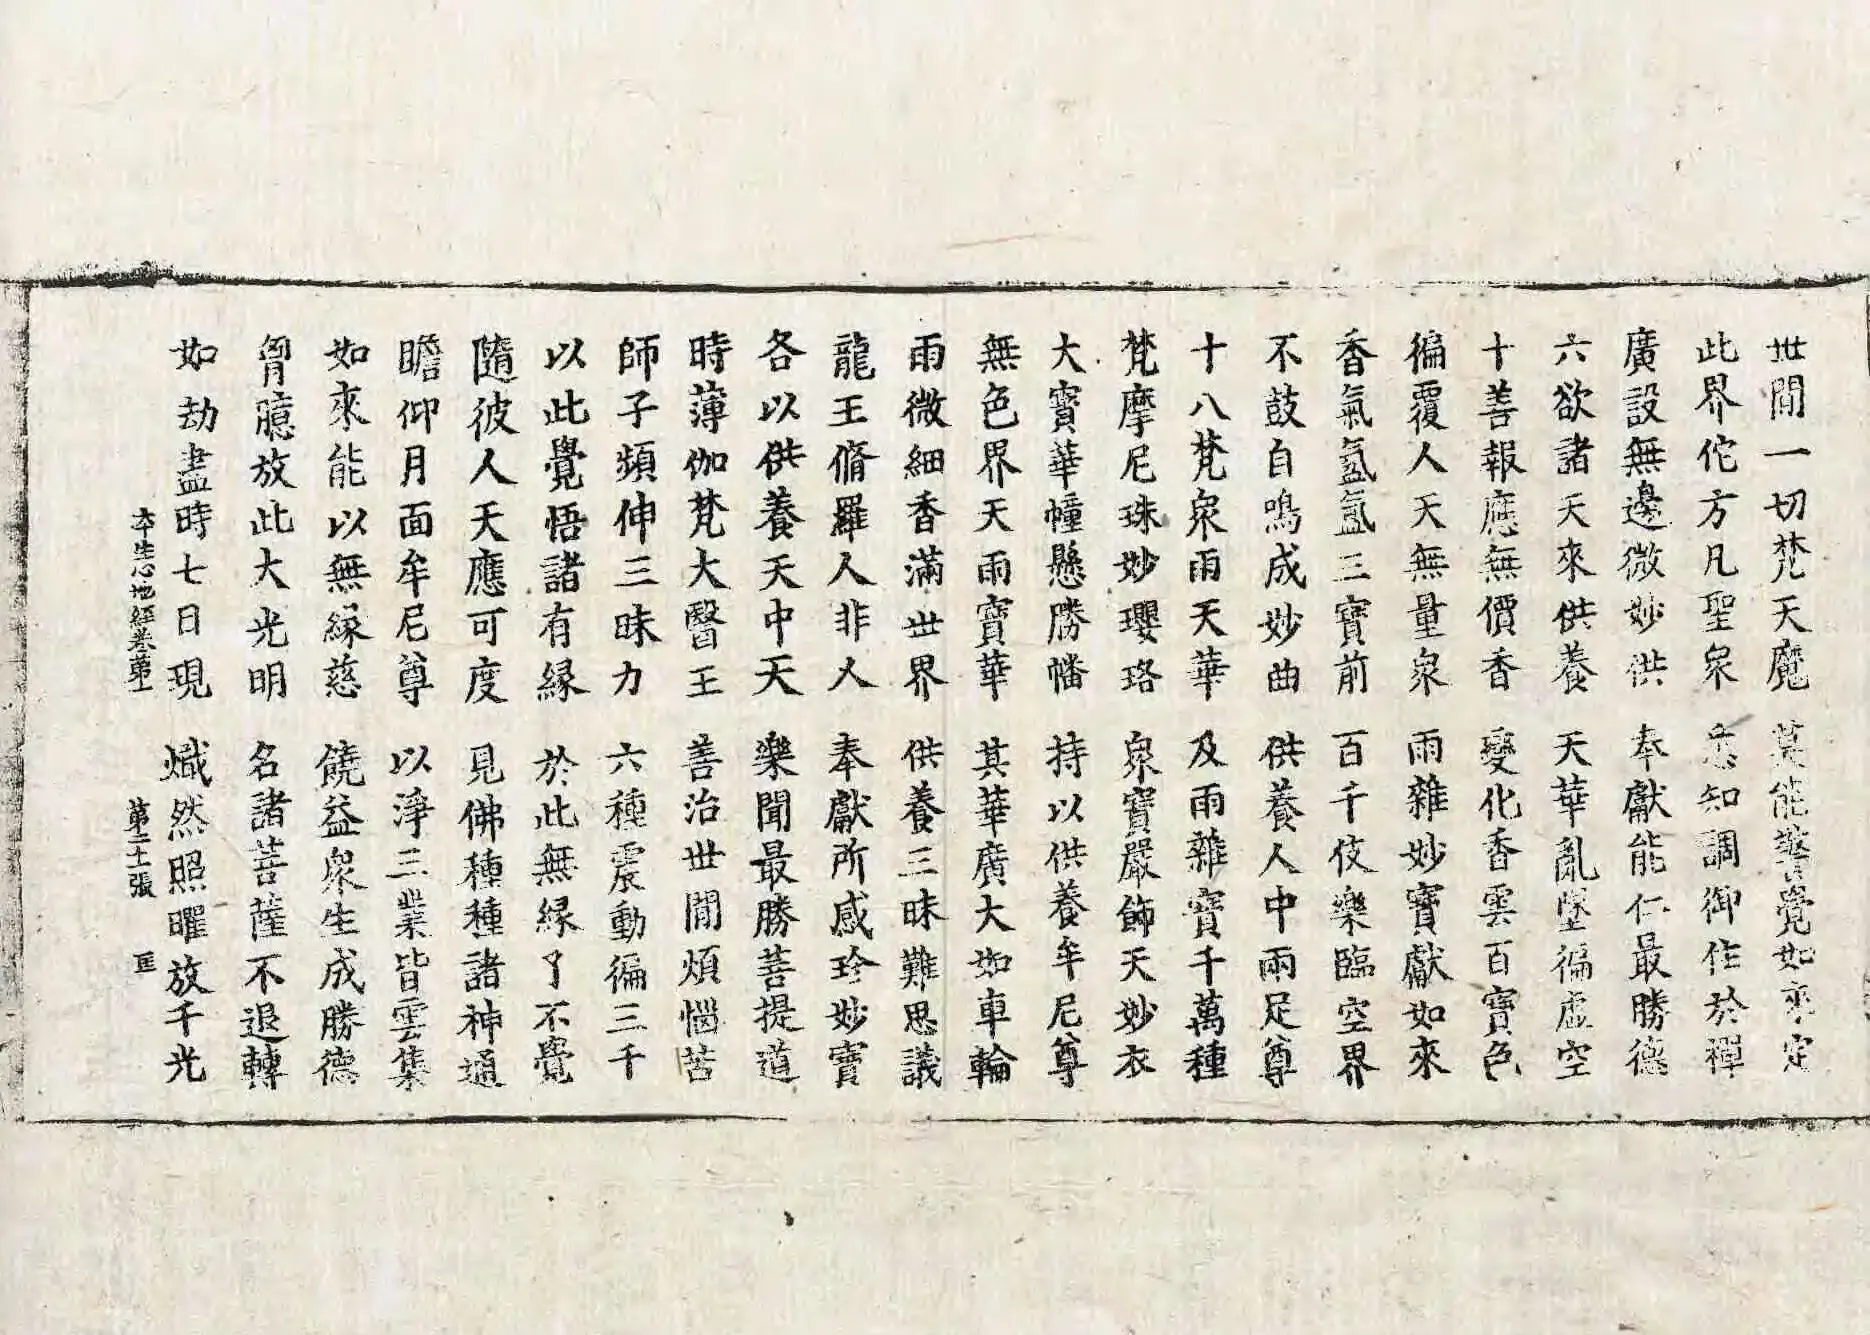 世間一切梵天魔　莫能警覺如來定
此界佗方凡聖衆　悉知調御作於禪
廣設無邊微妙供　奉獻能仁最勝德
六欲諸天來供養　天華亂墜徧虛空
十善報應無價香　變化香雲百寶色
徧覆人天無量衆　雨雜妙寶獻如來
香氣氳氳三寶前　百千伎樂臨空界
不鼓自鳴成妙曲　供養人中兩足尊
十八梵衆雨天華　及雨雜寶千萬種
梵摩尼珠妙瓔珞　衆寶嚴飾天妙衣
大寶華幢懸勝幡　持以供養牟尼尊
無色界天雨寶華　其華廣大如車輪
雨微細香滿世界　供養三昧難思議
龍王脩羅人非人　奉獻所感珍妙寶
各以供養天中天　樂聞最勝菩提道
時薄伽梵大醫王　善治世間煩惱苦
師子頻伸三昧力　六種震動徧三千
以此覺悟諸有緣　於此無緣了不覺
隨彼人天應可度　見佛種種諸神通
瞻仰月面牟尼尊　以淨三業皆雲集
如來能以無緣慈　饒益衆生成勝德
胷臆放此大光明　名諸菩薩不退轉
如劫盡時七日現　熾然照曜放千光
本生心地經卷第一　第二十張　匡